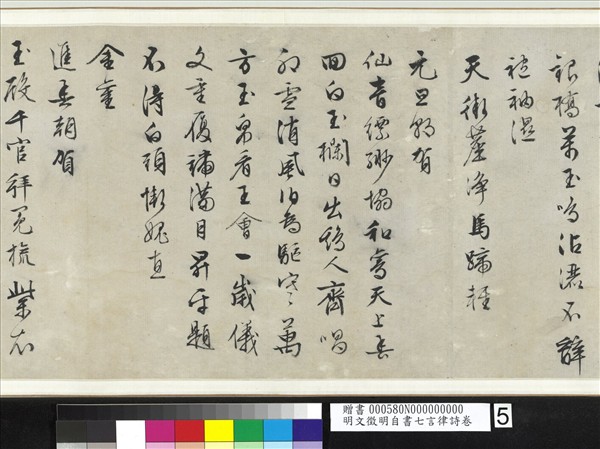 銀橋萬玉鳴沾濡不辭
袍袖濕
天街塵淨馬蹄輕
元旦朝賀
仙音縹緲協和鸞天上春
回白玉欄日出雞人齊唱
卯雪消風伯為驅寒萬
方玉帛看王會一歲儀
文重履端滿目昇平題
不得白頭慚愧直
金鑾
進春朝賀
玉殿千官拜冕旒紫
贈書 000580N000000000
明文徵明自書七言律詩卷
5